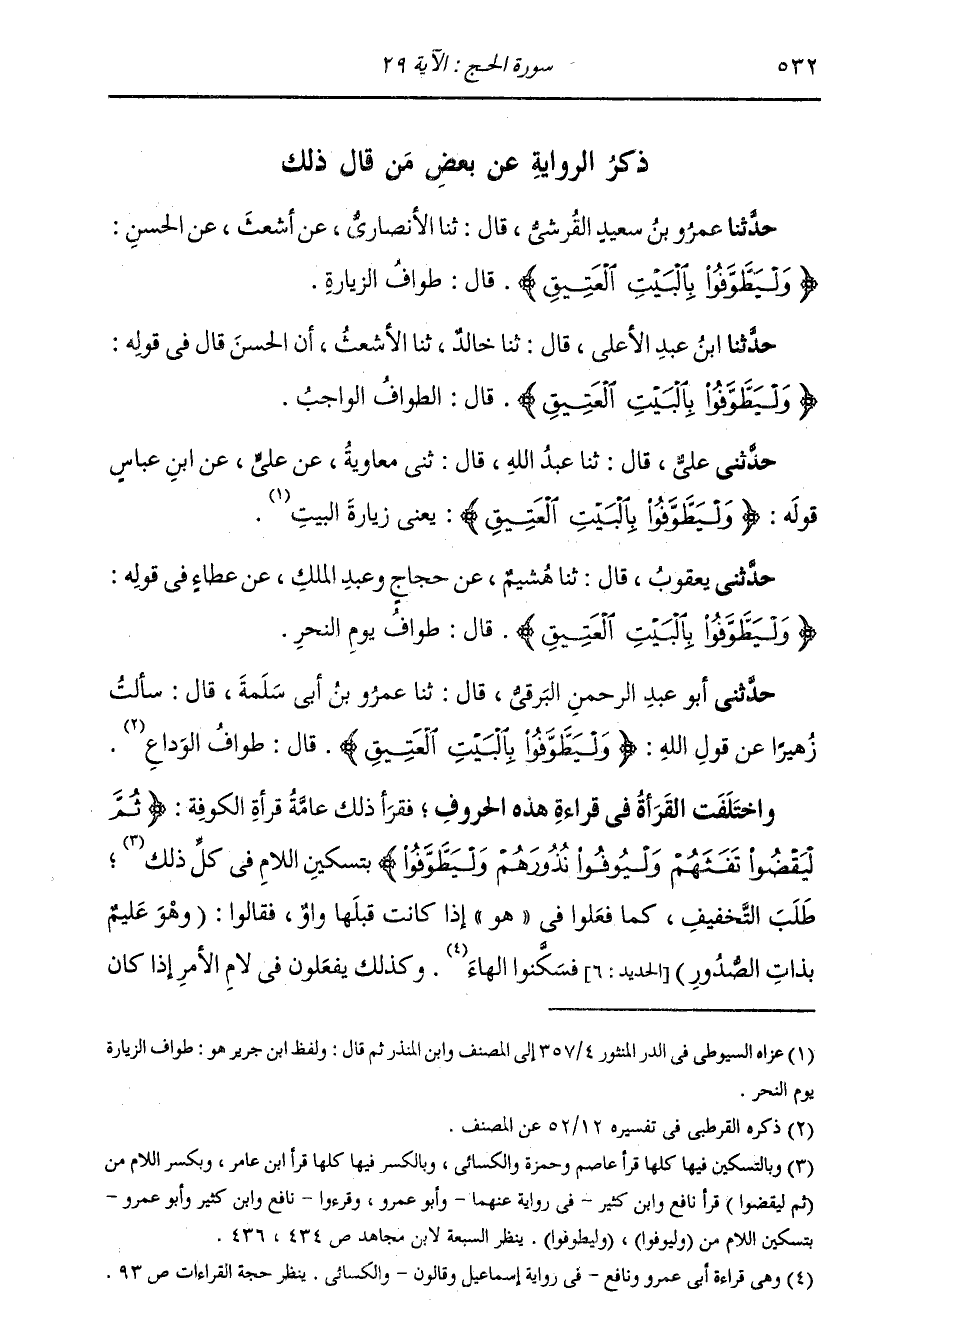 ٥٣٢
سورة الحج : الآية ٢٩
ذكرُ الروايةِ عن بعضِ مَن قال ذلك
حدَّثنا عمرُو بنُ سعيدٍ القُرشىُّ ، قال : ثنا الأنصارىُّ ، عن أشعثَ ، عن الحسنِ :
﴿ وَلْيَطَّوَّفُوا۟ بِٱلْبَيْتِ ٱلْعَتِيقِ ﴾ . قال : طوافُ الزيارةِ .
حدَّثنا ابنُ عبدِ الأعلى ، قال : ثنا خالدٌ ، ثنا الأشعثُ ، أن الحسنَ قال فى قولِه :
﴿ وَلْيَطَّوَّفُوا۟ بِٱلْبَيْتِ ٱلْعَتِيقِ ﴾ . قال : الطوافُ الواجبُ .
حدَّثنى علىٌّ ، قال : ثنا عبدُ اللهِ ، قال : ثنى معاويةُ ، عن علىٍّ ، عن ابنِ عباسٍ
قولَه : ﴿ وَلْيَطَّوَّفُوا۟ بِٱلْبَيْتِ ٱلْعَتِيقِ ﴾ : يعنى زيارةَ البيتِ (١) .
حدَّثنى يعقوبُ ، قال : ثنا هُشيمٌ ، عن حجاجٍ وعبدِ الملكِ ، عن عطاءٍ فى قولِه :
﴿ وَلْيَطَّوَّفُوا۟ بِٱلْبَيْتِ ٱلْعَتِيقِ ﴾ . قال : طوافُ يومِ النحرِ .
حدَّثنى أبو عبدِ الرحمنِ البَرقىُّ ، قال : ثنا عمرُو بنُ أبى سَلَمةَ ، قال : سألتُ
زُهيرًا عن قولِ اللهِ : ﴿ وَلْيَطَّوَّفُوا۟ بِٱلْبَيْتِ ٱلْعَتِيقِ ﴾ . قال : طوافُ الوَداعِ (٢) .
واختَلَفَت القَرَأةُ فى قراءةِ هذه الحروفِ ؛ فقرَأ ذلك عامَّةُ قرأةِ الكوفِة : ﴿ ثُمَّ
لْيَقْضُوا۟ تَفَثَهُمْ وَلْيُوفُوا۟ نُذُورَهُمْ وَلْيَطَّوَّفُوا۟ ﴾ بتسكينِ اللامِ فى كلِّ ذلك (٣) ؛
طَلَبَ التَّخفيفِ ، كما فعَلوا فى « هو » إذا كانت قبلَها واوٌ ، فقالوا : ( وهْوَ عَليمٌ
بذاتِ الصُّدُورِ ) [الحديد : ٦] فسَكَّنوا الهاءَ (٤) . وكذلك يفعَلون فى لامِ الأمرِ إذا كان
(١) عزاه السيوطى فى الدر المنثور ٣٥٧/٤ إلى المصنف وابن المنذر ثم قال : ولفظ ابن جرير هو : طواف الزيارة
يوم النحر .
(٢) ذكره القرطبى فى تفسيره ٥٢/١٢ عن المصنف .
(٣) وبالتسكين فيها كلها قرأ عاصم وحمزة والكسائى ، وبالكسر فيها كلها قرأ ابن عامر ، وبكسر اللام من
(ثم ليقضوا ) قرأ نافع وابن كثير - فى رواية عنهما - وأبو عمرو ، وقرءوا - نافع وابن كثير وأبو عمرو -
بتسكين اللام من (وليوفوا) ، (وليطوفوا) . ينظر السبعة لابن مجاهد ص ٤٣٤ ، ٤٣٦ .
(٤) وهى قراءة أبى عمرو ونافع - فى رواية إسماعيل وقالون - والكسائى . ينظر حجة القراءات ص ٩٣ .